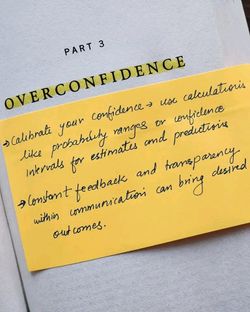 PART 3
OVERCONFIDENCE
→ Calibrate your confidence → use calculations
like probability ranges or confidence
intervals for estimates and predictions
→ Constant feedback and transparency
within communication can bring desired
outcomes.